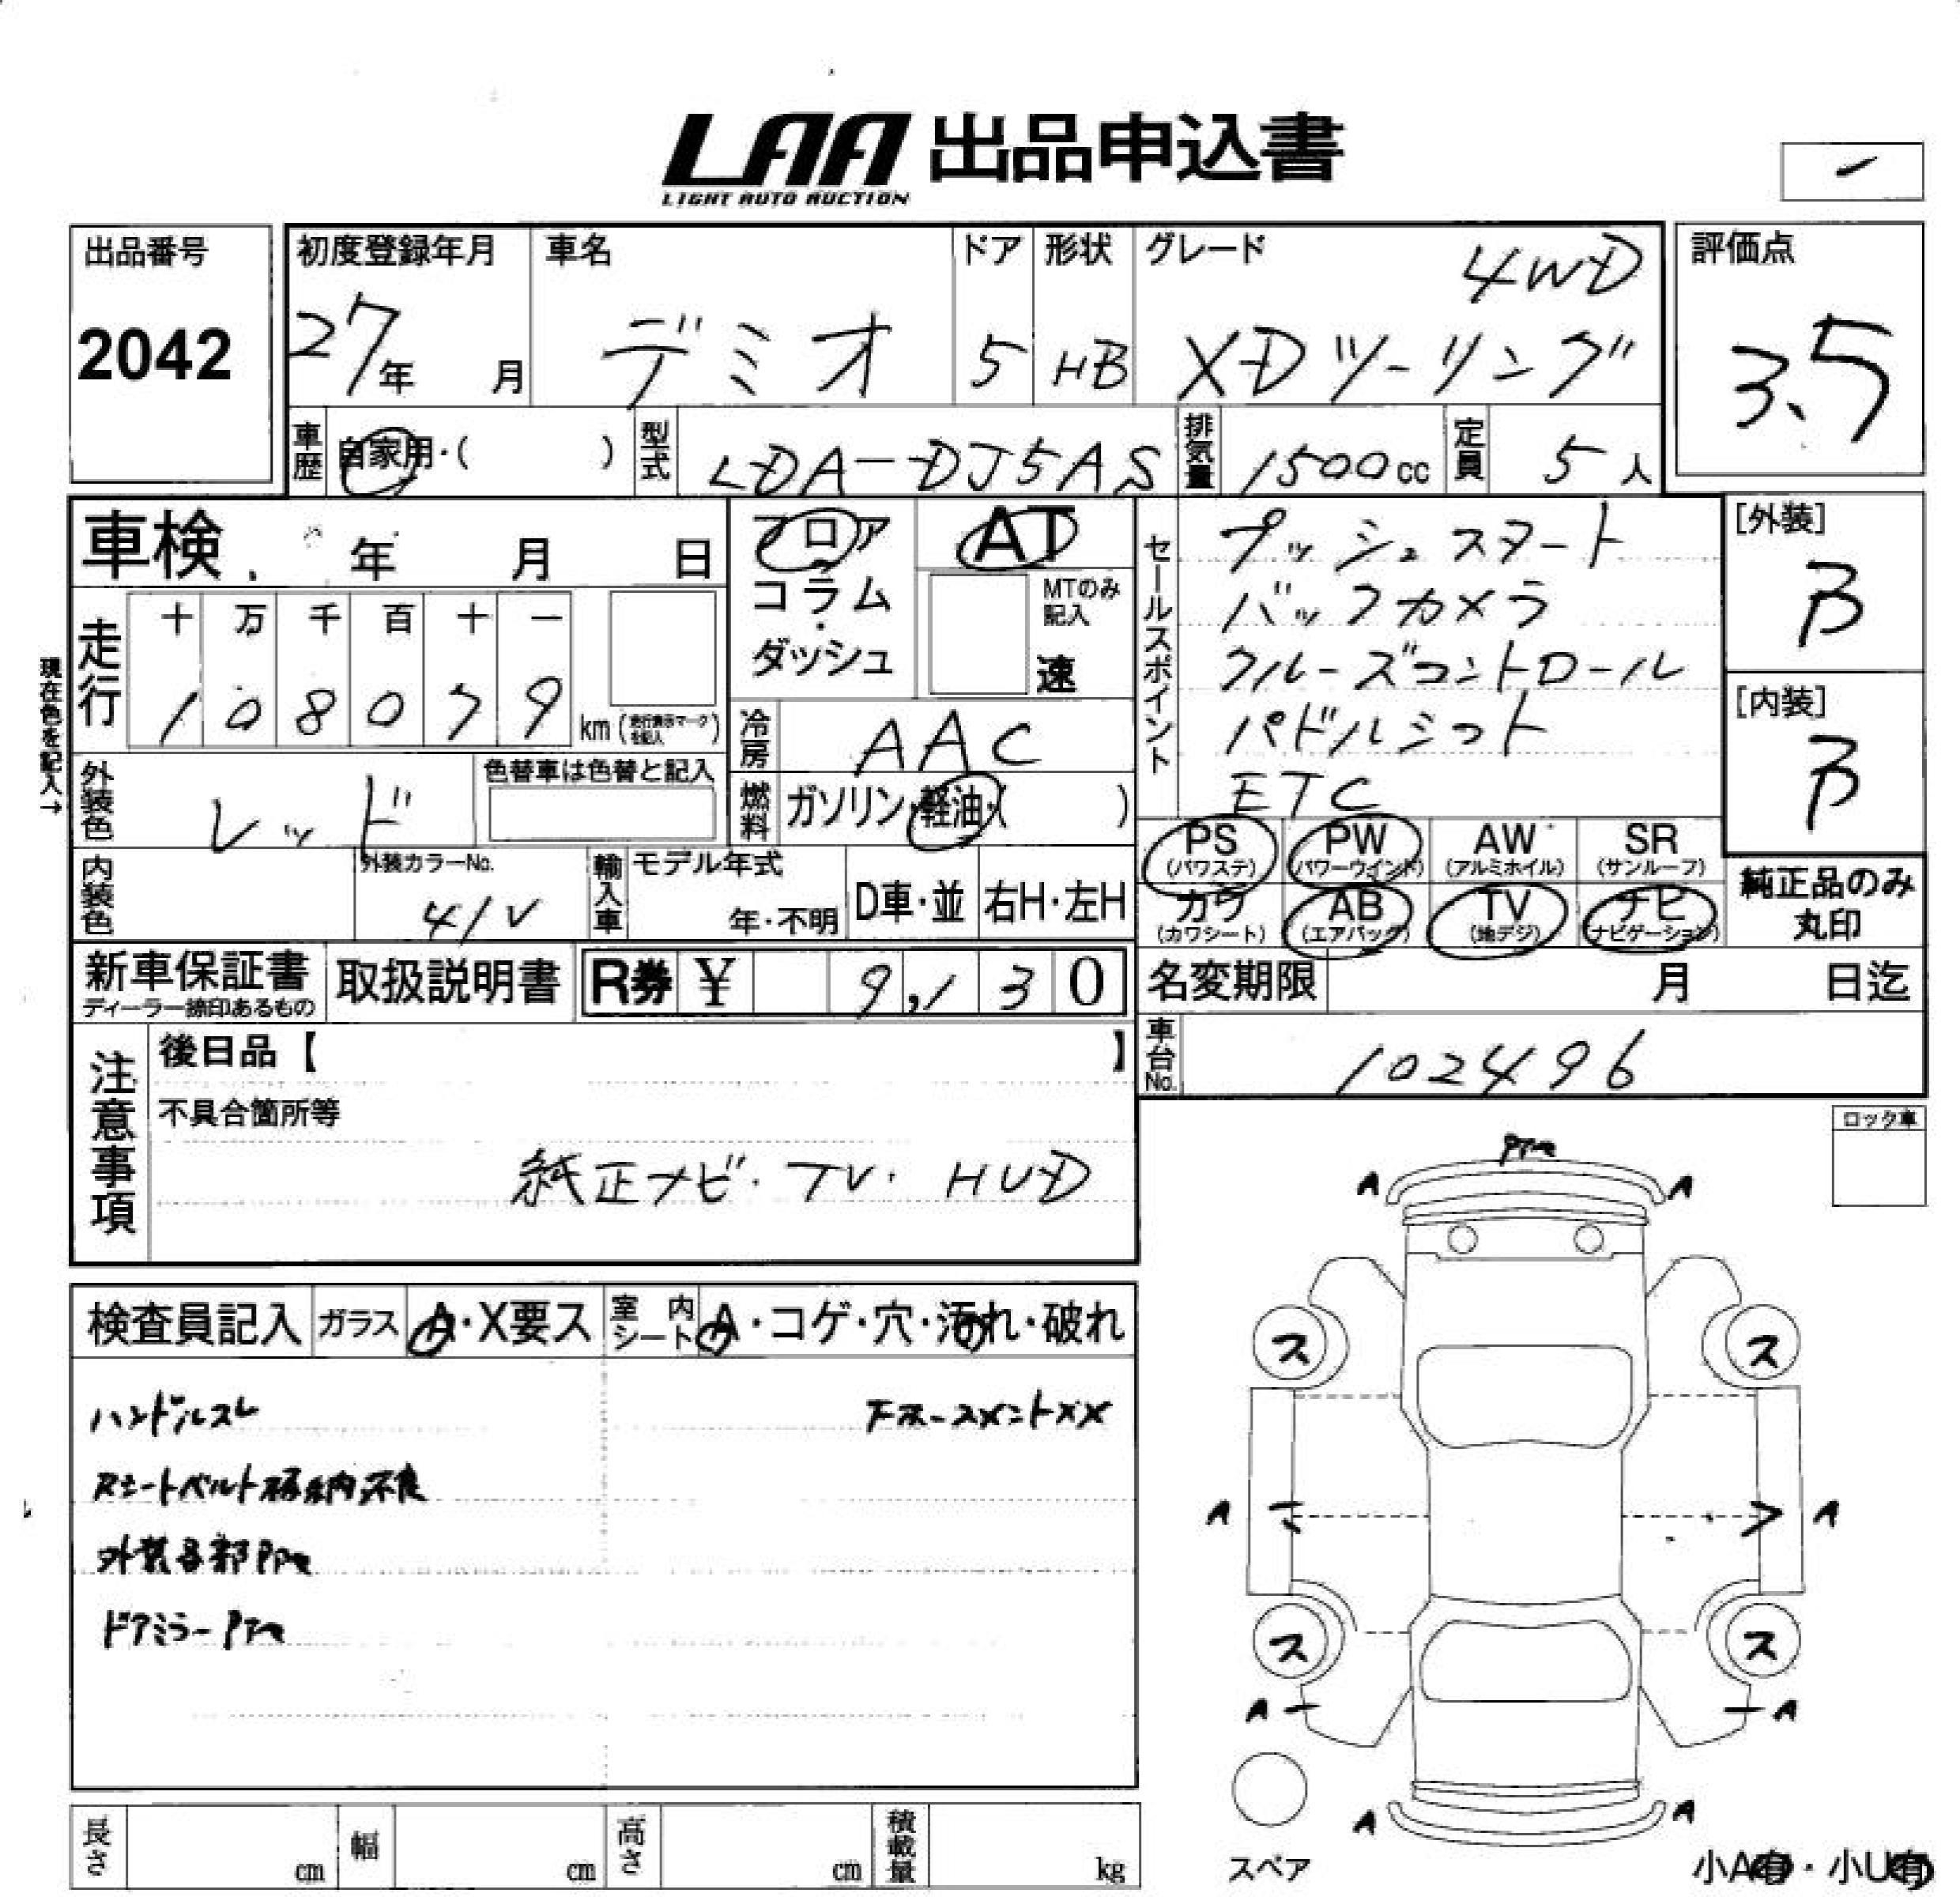 LAA 出品申込書
LIGHT AUTO AUCTION
出品番号
2042
初度登録年月
27年 月
車名
デミオ
ドア
5
形状
HB
グレード
4WD
XDツーリング
評価点
3.5
車歴
自家用・( )
型式
LDA-DJ5AS
排気量
1500cc
定員
5人
車検 年 月 日
走行
十 万 千 百 十 一
1 0 8 0 7 9 km (走行表示マークを記入)
現在色を記入→
外装色
レッド
色替車は色替と記入
内装色
外装カラーNo.
41V
フロア・コラム・ダッシュ
AT
MTのみ記入
速
冷房
AAC
燃料
ガソリン・軽油・( )
輸入車
モデル年式
年・不明
D車・並
右H・左H
セールスポイント
プッシュスタート
バックカメラ
クルーズコントロール
パドルシフト
ETC
[外装]
B
[内装]
B
PS (パワステ)
PW (パワーウインド)
AW (アルミホイル)
SR (サンルーフ)
カワ (カワシート)
AB (エアバッグ)
TV (地デジ)
ナビ (ナビゲーション)
純正品のみ
丸印
新車保証書
ディーラー締印あるもの
取扱説明書
R券 ¥ 9,130
名変期限 月 日迄
車台No.
102496
注意事項
後日品【 】
不具合箇所等
純正ナビ・TV・HUD
ロック車
検査員記入
ガラス
A・X要ス
室内シート
A・コゲ・穴・汚れ・破れ
ハンドルスレ
シートベルト格納不良
外装各部
ドアミラー
A A
ス ス
A A
ス ス
A A
A A
スペア
小A有・小U有
長さ cm
幅 cm
高さ cm
積載量 kg